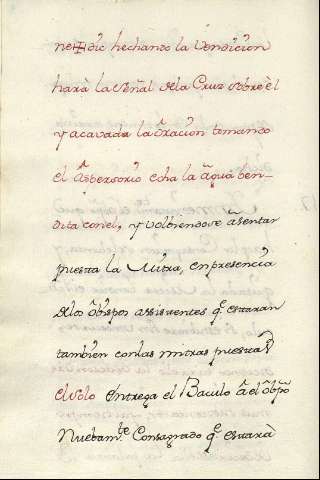 ne✠dic hechando la vendicion
harà la señal dela Cruz sobre èl
y acavada la òracion tomando
el Àspersorio echa la àgua ben-
dita con el, y volbiendose àsentar
puesta la Mitra, en presencia
delos òbispos assistentes q.e estaran
tambien con las mitras puestas
el solo èntrega el Baculo à el òbp̃o
Nuebam.te Consagrado q.e estarà